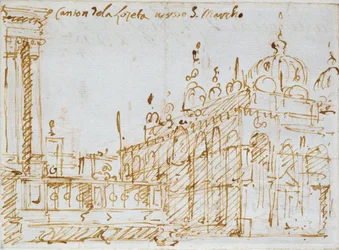 Canton dela Logeta verso S. Marcho